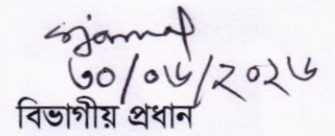 ৩০/০৬/২০২৬
বিভাগীয় প্রধান